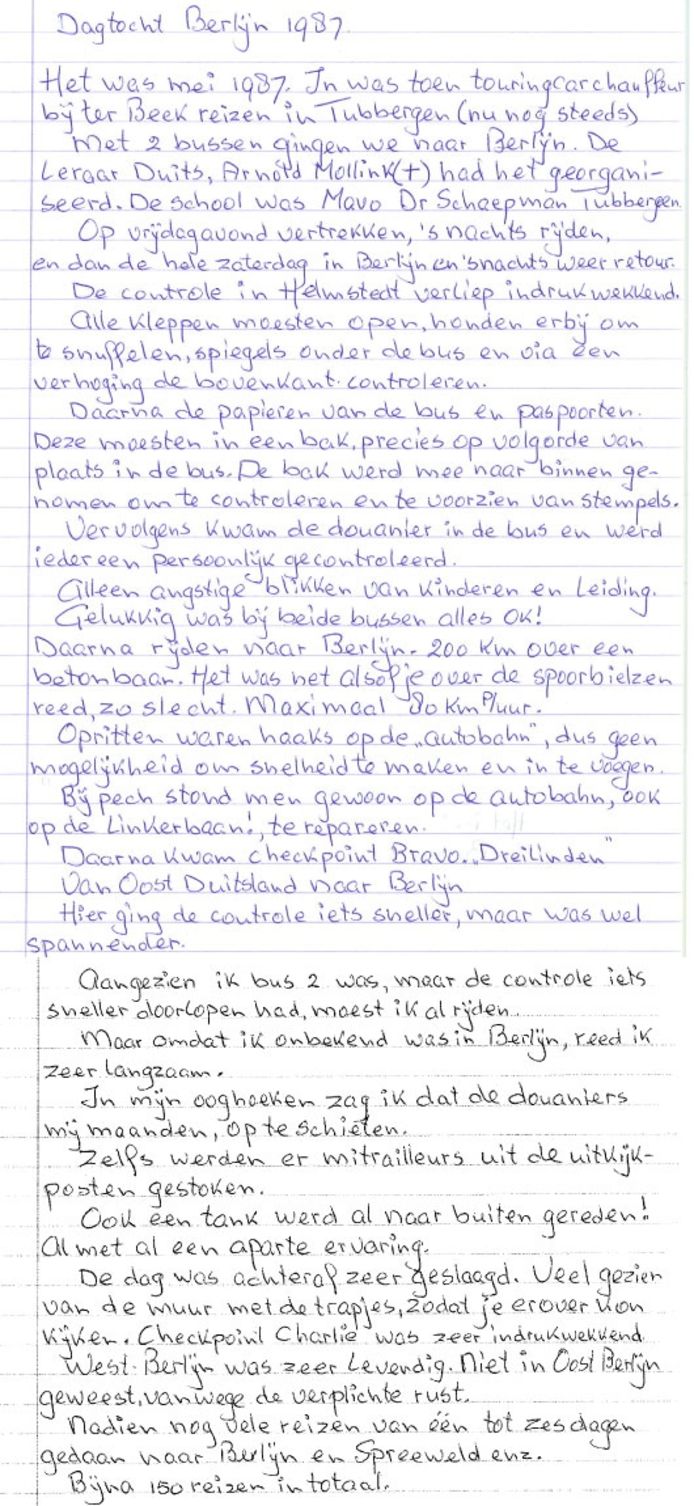 Dagtocht Berlijn 1987.
Het was mei 1987. In was toen touringcarchauffeur
bij ter Beek reizen in Tubbergen (nu nog steeds)
Met 2 bussen gingen we naar Berlijn. De
Leraar Duits, Arnold Mollink(+) had het georgani-
seerd. De school was Mavo Dr Schaepman Tubbergen.
Op vrijdagavond vertrekken, 's nachts rijden,
en dan de hele zaterdag in Berlijn en 'snachts weer retour.
De controle in Helmstedt verliep indrukwekkend.
Alle kleppen moesten open, honden erbij om
te snuffelen, spiegels onder de bus en via een
verhoging de bovenkant controleren.
Daarna de papieren van de bus en paspoorten.
Deze moesten in een bak, precies op volgorde van
plaats in de bus. De bak werd mee naar binnen ge-
nomen om te controleren en te voorzien van stempels.
Vervolgens kwam de douanier in de bus en werd
iedereen persoonlijk gecontroleerd.
Alleen angstige blikken van kinderen en Leiding.
Gelukkig was bij beide bussen alles OK!
Daarna rijden naar Berlijn. 200 km over een
betonbaan. Het was net alsof je over de spoorbielzen
reed, zo slecht. Maximaal 80 km p/uur.
Opritten waren haaks op de „autobahn", dus geen
mogelijkheid om snelheid te maken en in te voegen.
Bij pech stond men gewoon op de autobahn, ook
op de Linkerbaan!, te repareren.
Daarna kwam checkpoint Bravo. „Dreilinden"
Van Oost Duitsland naar Berlijn
Hier ging de controle iets sneller, maar was wel
spannender.
Aangezien ik bus 2 was, maar de controle iets
sneller doorlopen had, moest ik al rijden.
Maar omdat ik onbekend was in Berlijn, reed ik
zeer langzaam.
In mijn ooghoeken zag ik dat de douaniers
mij maanden, op te schieten.
Zelfs werden er mitrailleurs uit de uitkijk-
posten gestoken.
Ook een tank werd al naar buiten gereden!
Al met al een aparte ervaring.
De dag was achteraf zeer geslaagd. Veel gezien
van de muur met de trapjes, zodat je erover kon
kijken. Checkpoint Charlie was zeer indrukwekkend.
West-Berlijn was zeer Levendig. Niet in Oost Berlijn
geweest, vanwege de verplichte rust.
Nadien nog vele reizen van één tot zes dagen
gedaan naar Berlijn en Spreeweld enz.
Bijna 150 reizen in totaal.